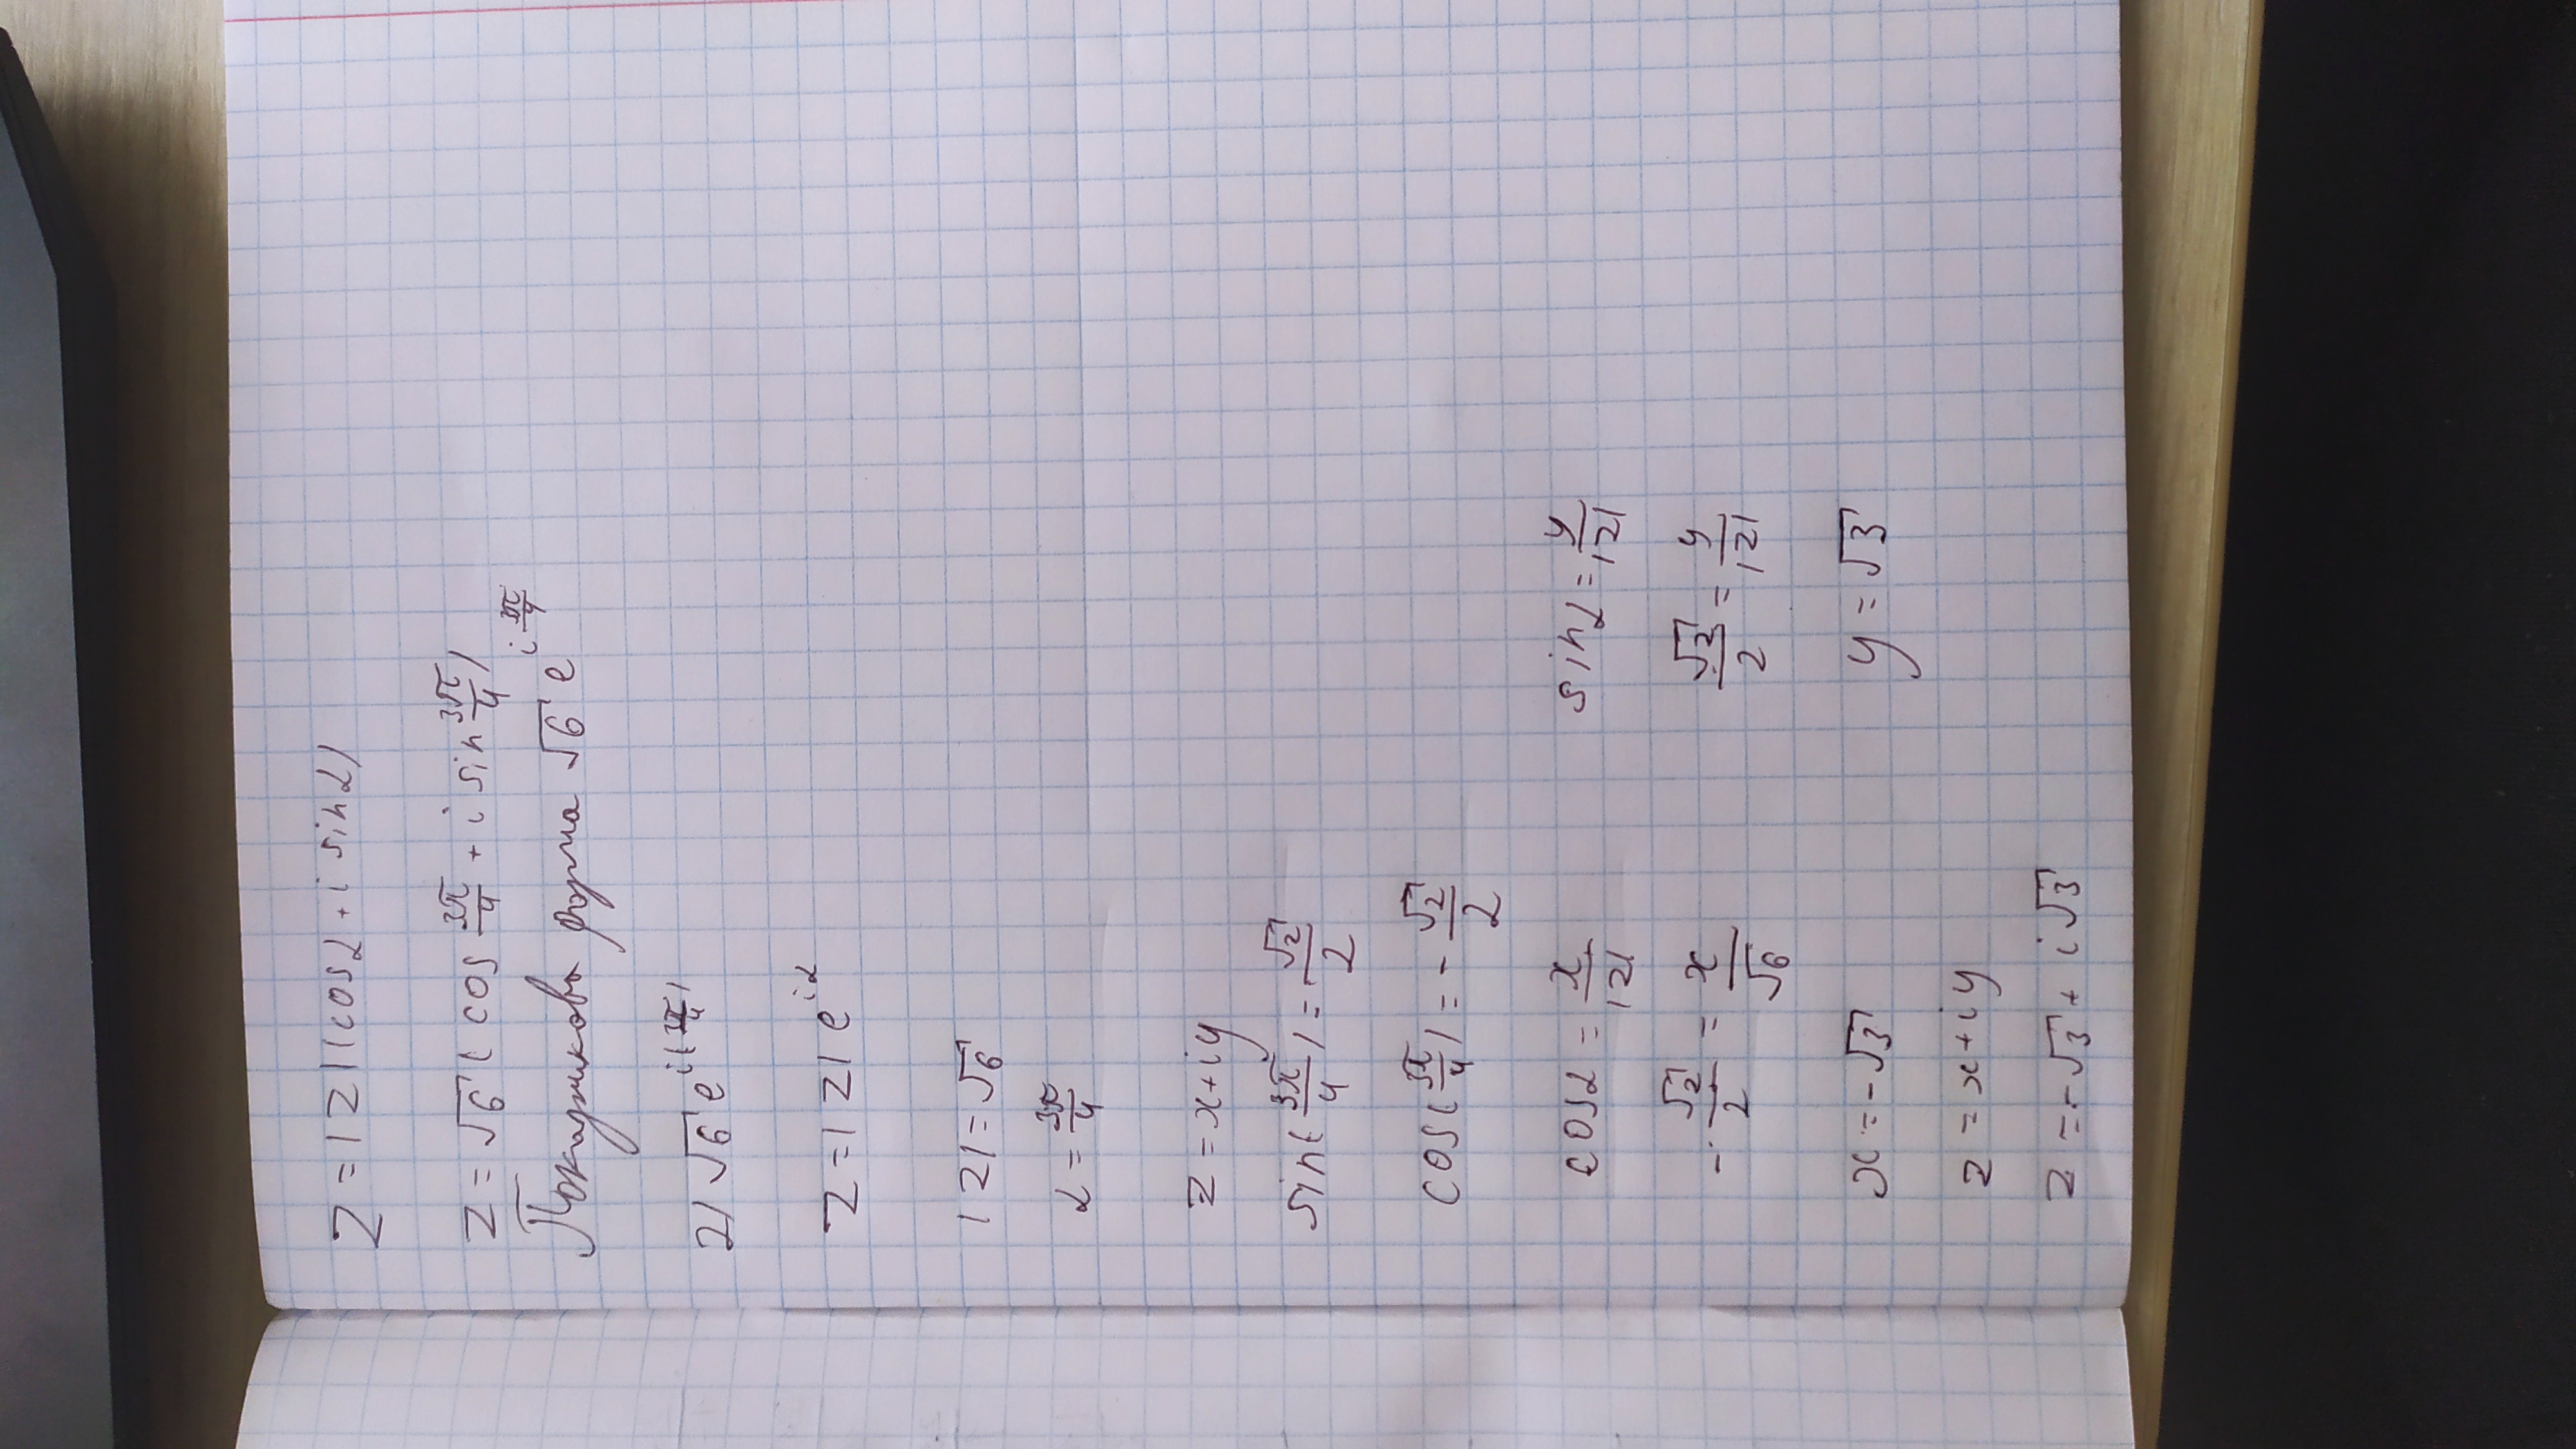 z = |z|(cosα + i sinα)
z = √6 (cos 3π/4 + i sin 3π/4)
Показникова форма √6 e^(i 3π/4)
2) √6 e^(i(3π/4))
z = |z| e^(iα)
|z| = √6
α = 3π/4
z = x + iy
sin(3π/4) = √2/2
cos(3π/4) = -√2/2
cosα = x/|z| sinα = y/|z|
-√2/2 = x/√6 √2/2 = y/|z|
x = -√3 y = √3
z = x + iy
z = -√3 + i√3